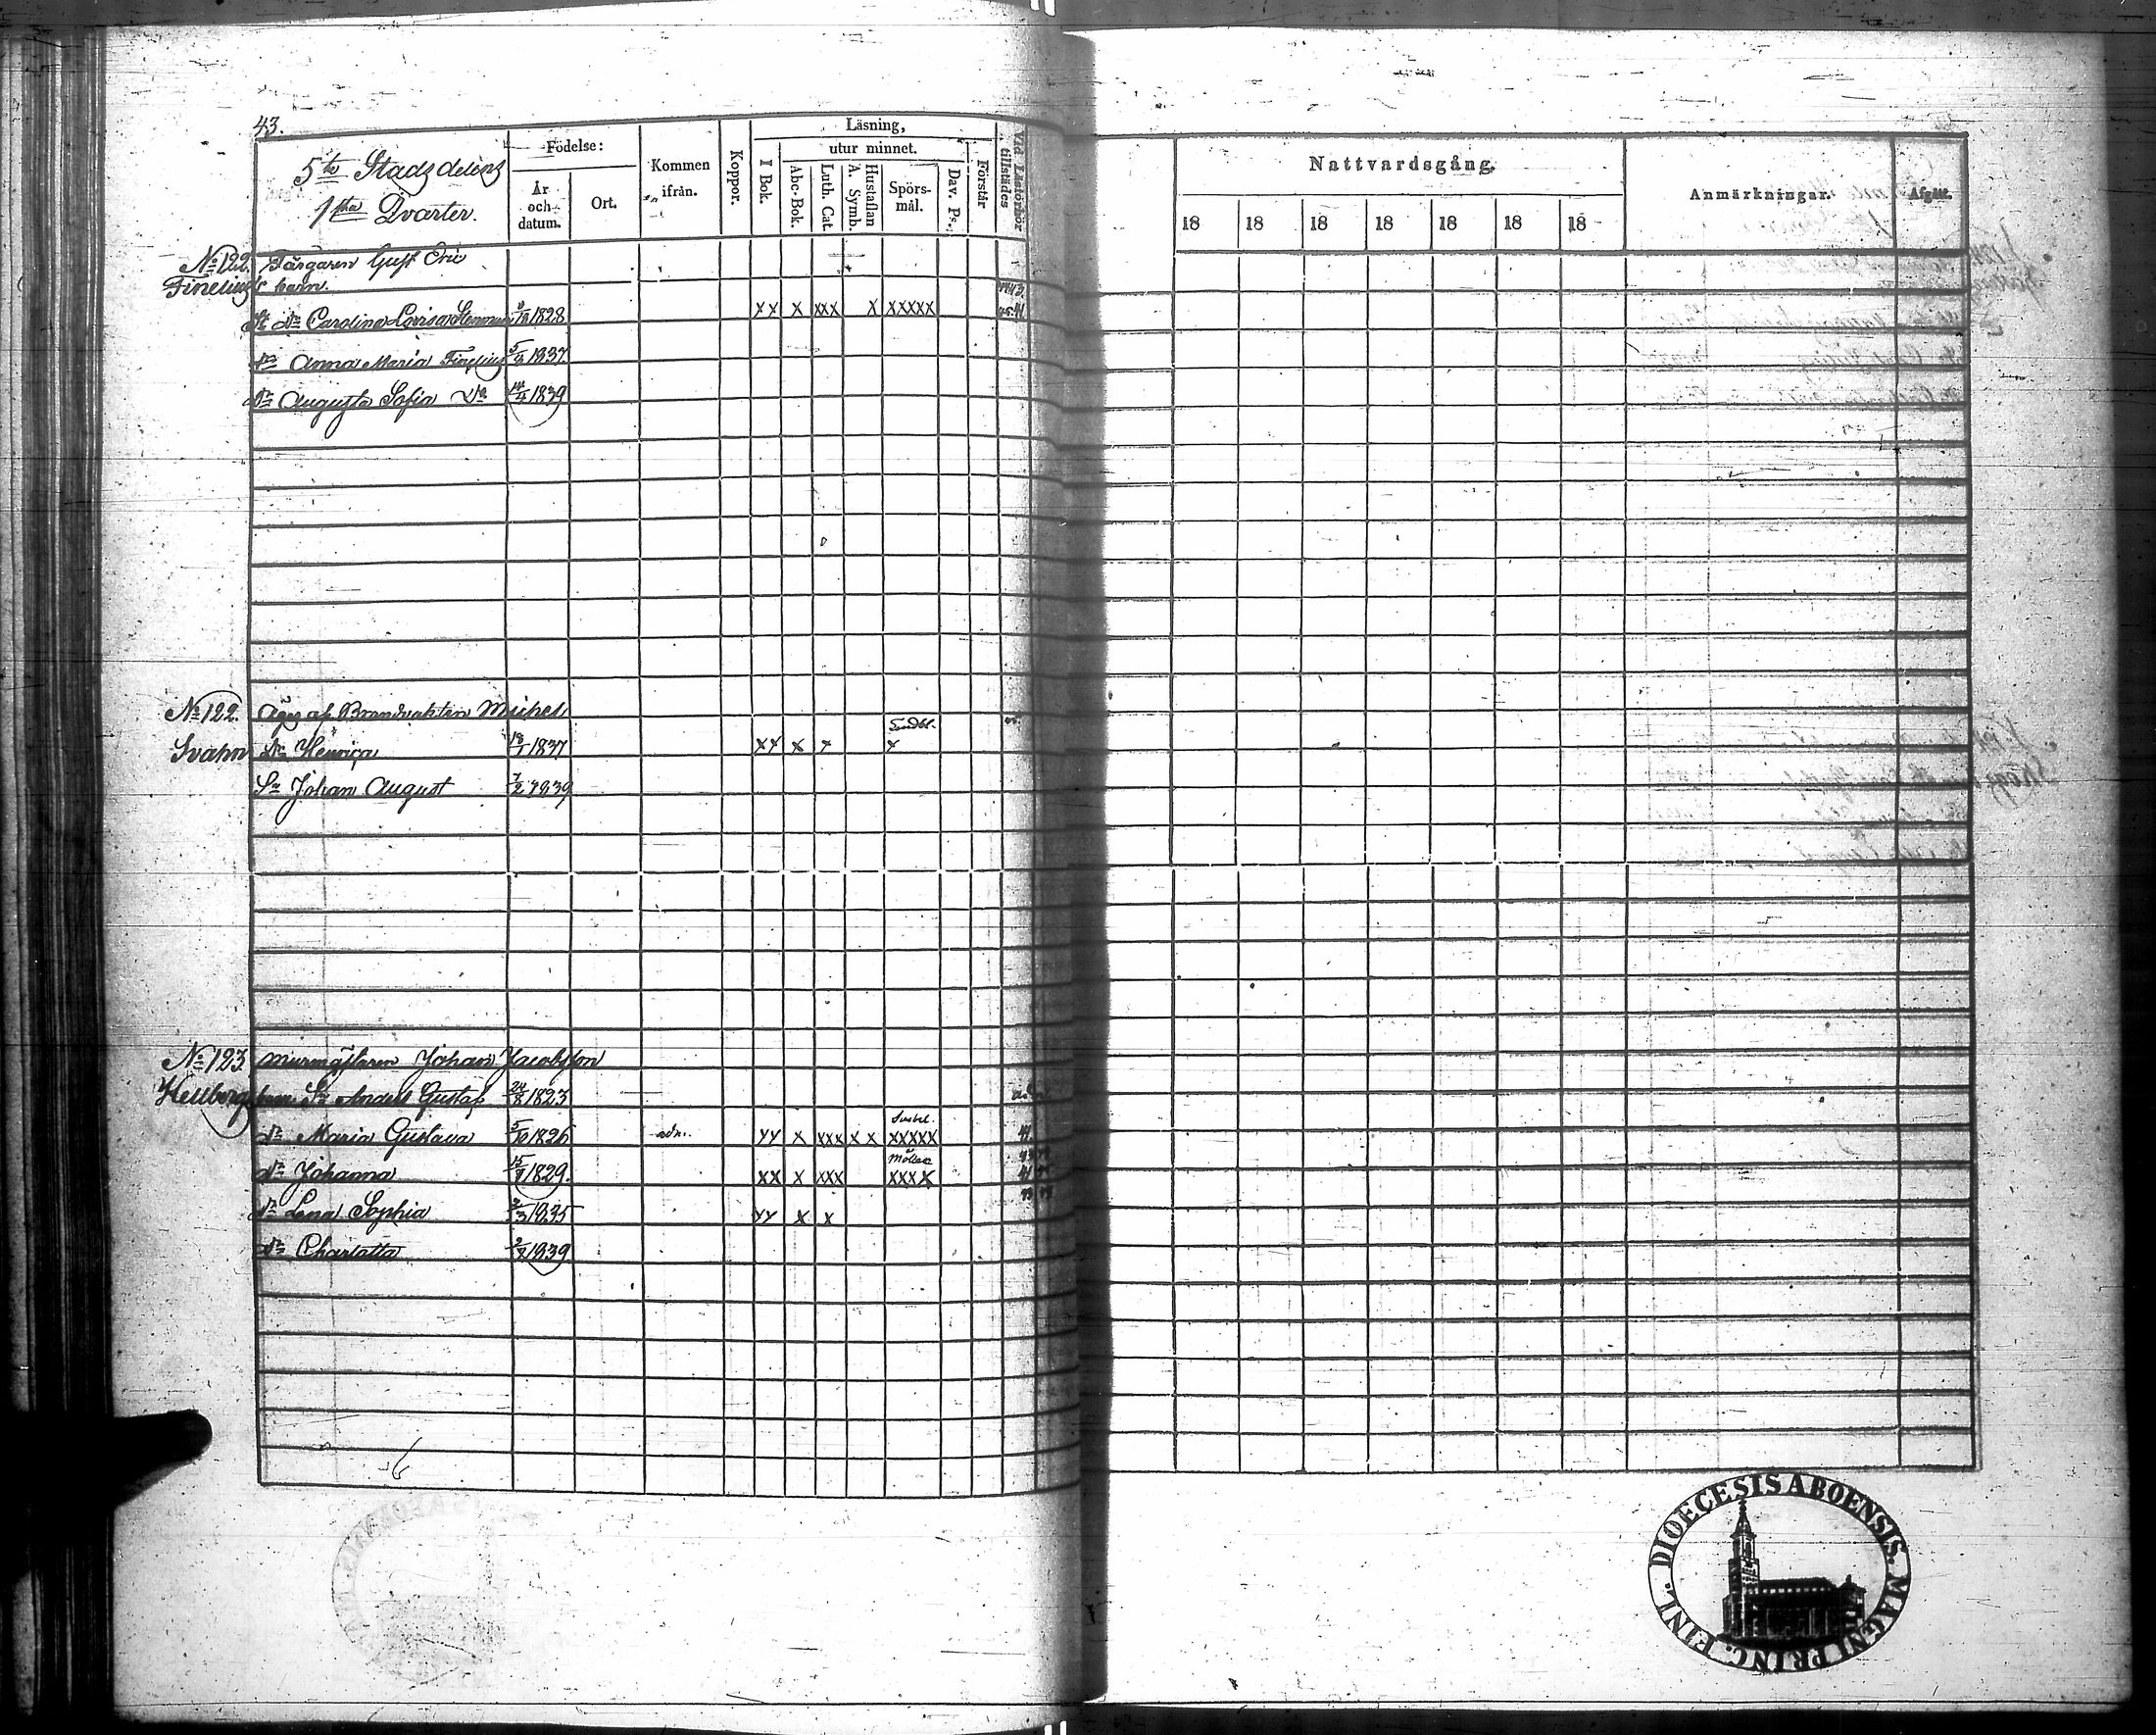 43.
5te Stadsdelens
1sta Qvarter.
Födelse:
År och datum.
Ort.
Kommen ifrån.
Koppor.
Läsning,
I Bok.
utur minnet.
Abc-Bok.
Luth. Cat.
Hustaflan
A. Symb.
Spörsmål.
Dav. Ps.
Förstår
Vid Läsförhör tillstädes
Nattvardsgång.
18 18 18 18 18 18 18
Anmärkningar.
Afgått.
No 122. Färgaren Gust Eric
Finelius barn.
Dr Carolina Lovisa 1828 xx x xxx x xxxxx
Dr Anna Maria Finelius 5/9 1837
Dr Augusta Sofia Do 14/4 1839
No 122. Äges af Brandvakten Michel
Svahn Dr Henrica 18/1 1837 xx x x x
Sn Johan August 7/2 1839
No 123. Murmästaren Johan Jacobsson
Hellberg barn Sn Anders Gustaf 24/8 1823
Dr Maria Gustava 5/10 1826 adm. xx x xxx x x xxxxx
Dr Johanna 15/9 1829. xx x xxx xxxx
Dr Lena Sophia 2/3 1835 xx x x
Dr Charlotta 1839
DIOECESIS ABOENSIS. MAGNI PRINC. FINL.